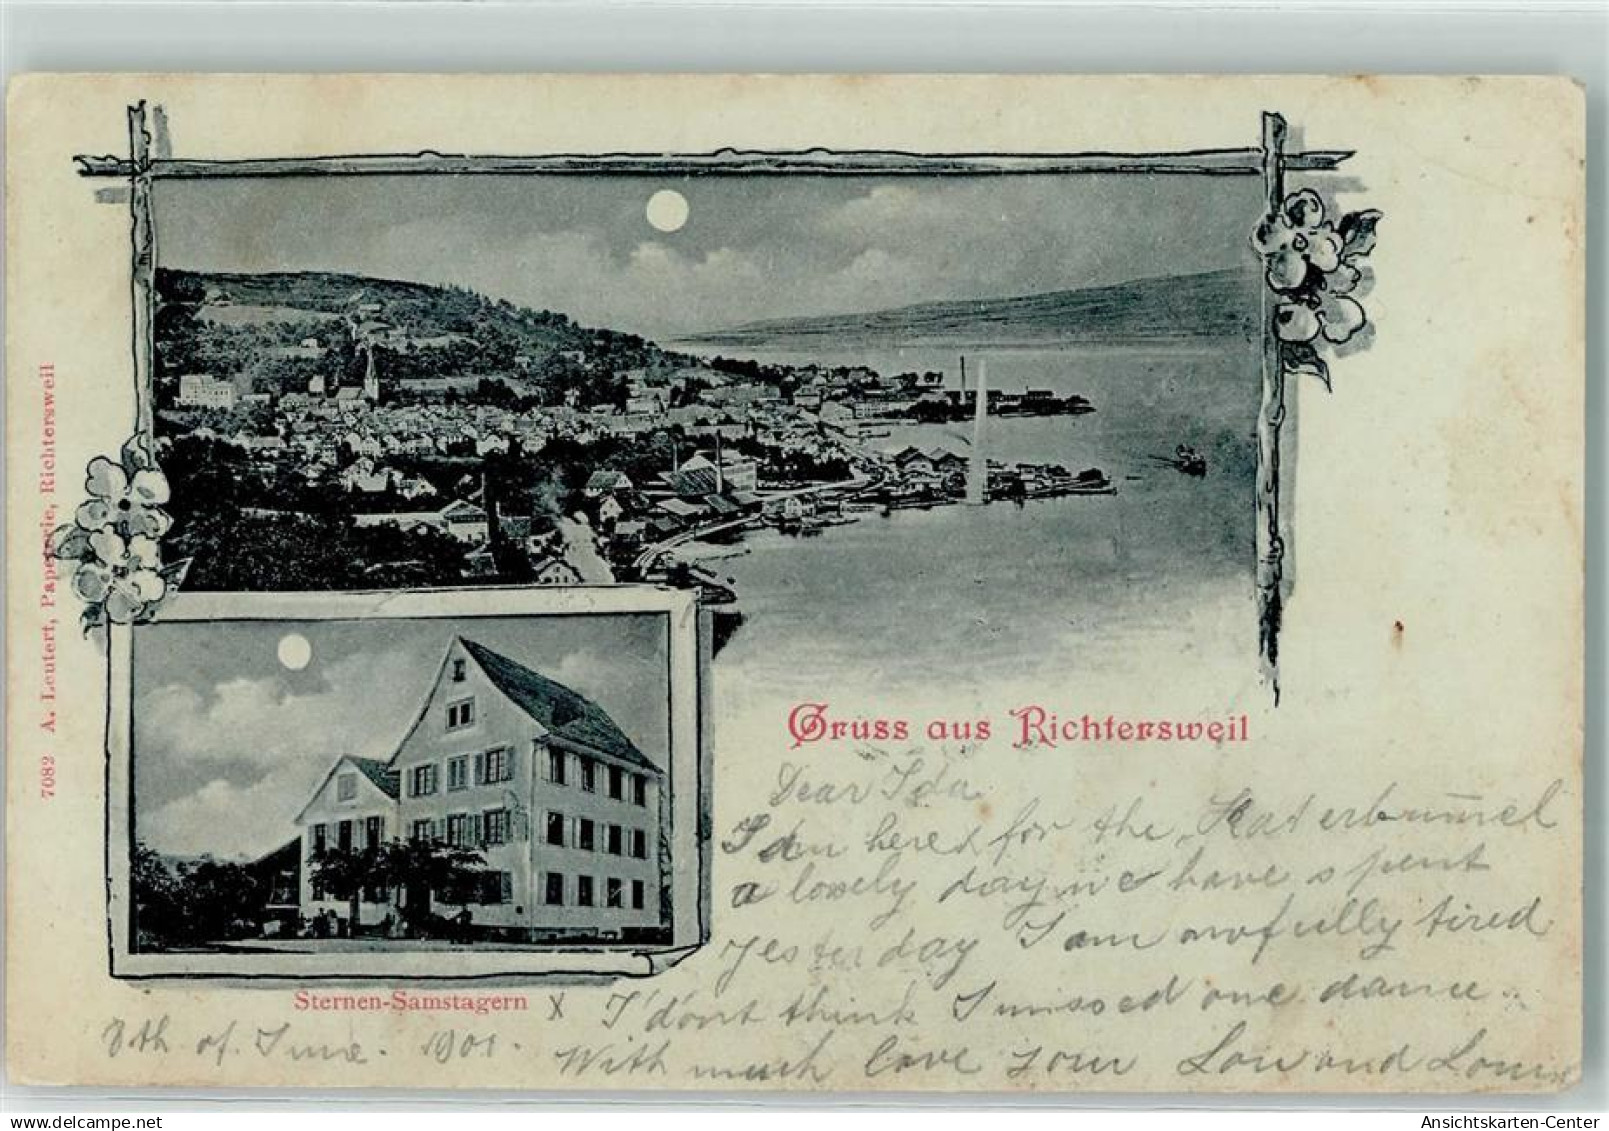 7082 A. Leutert, Papeterie, Richtersweil
Gruss aus Richtersweil
Dear Ida
I am here x for the
a lovely day we have spent
yesterday I am awfully tired
Sternen-Samstagern X I don't think I missed one dance.
8th of June. 1901. With much love your Lou and Louis
AnsichtsKarten-Center